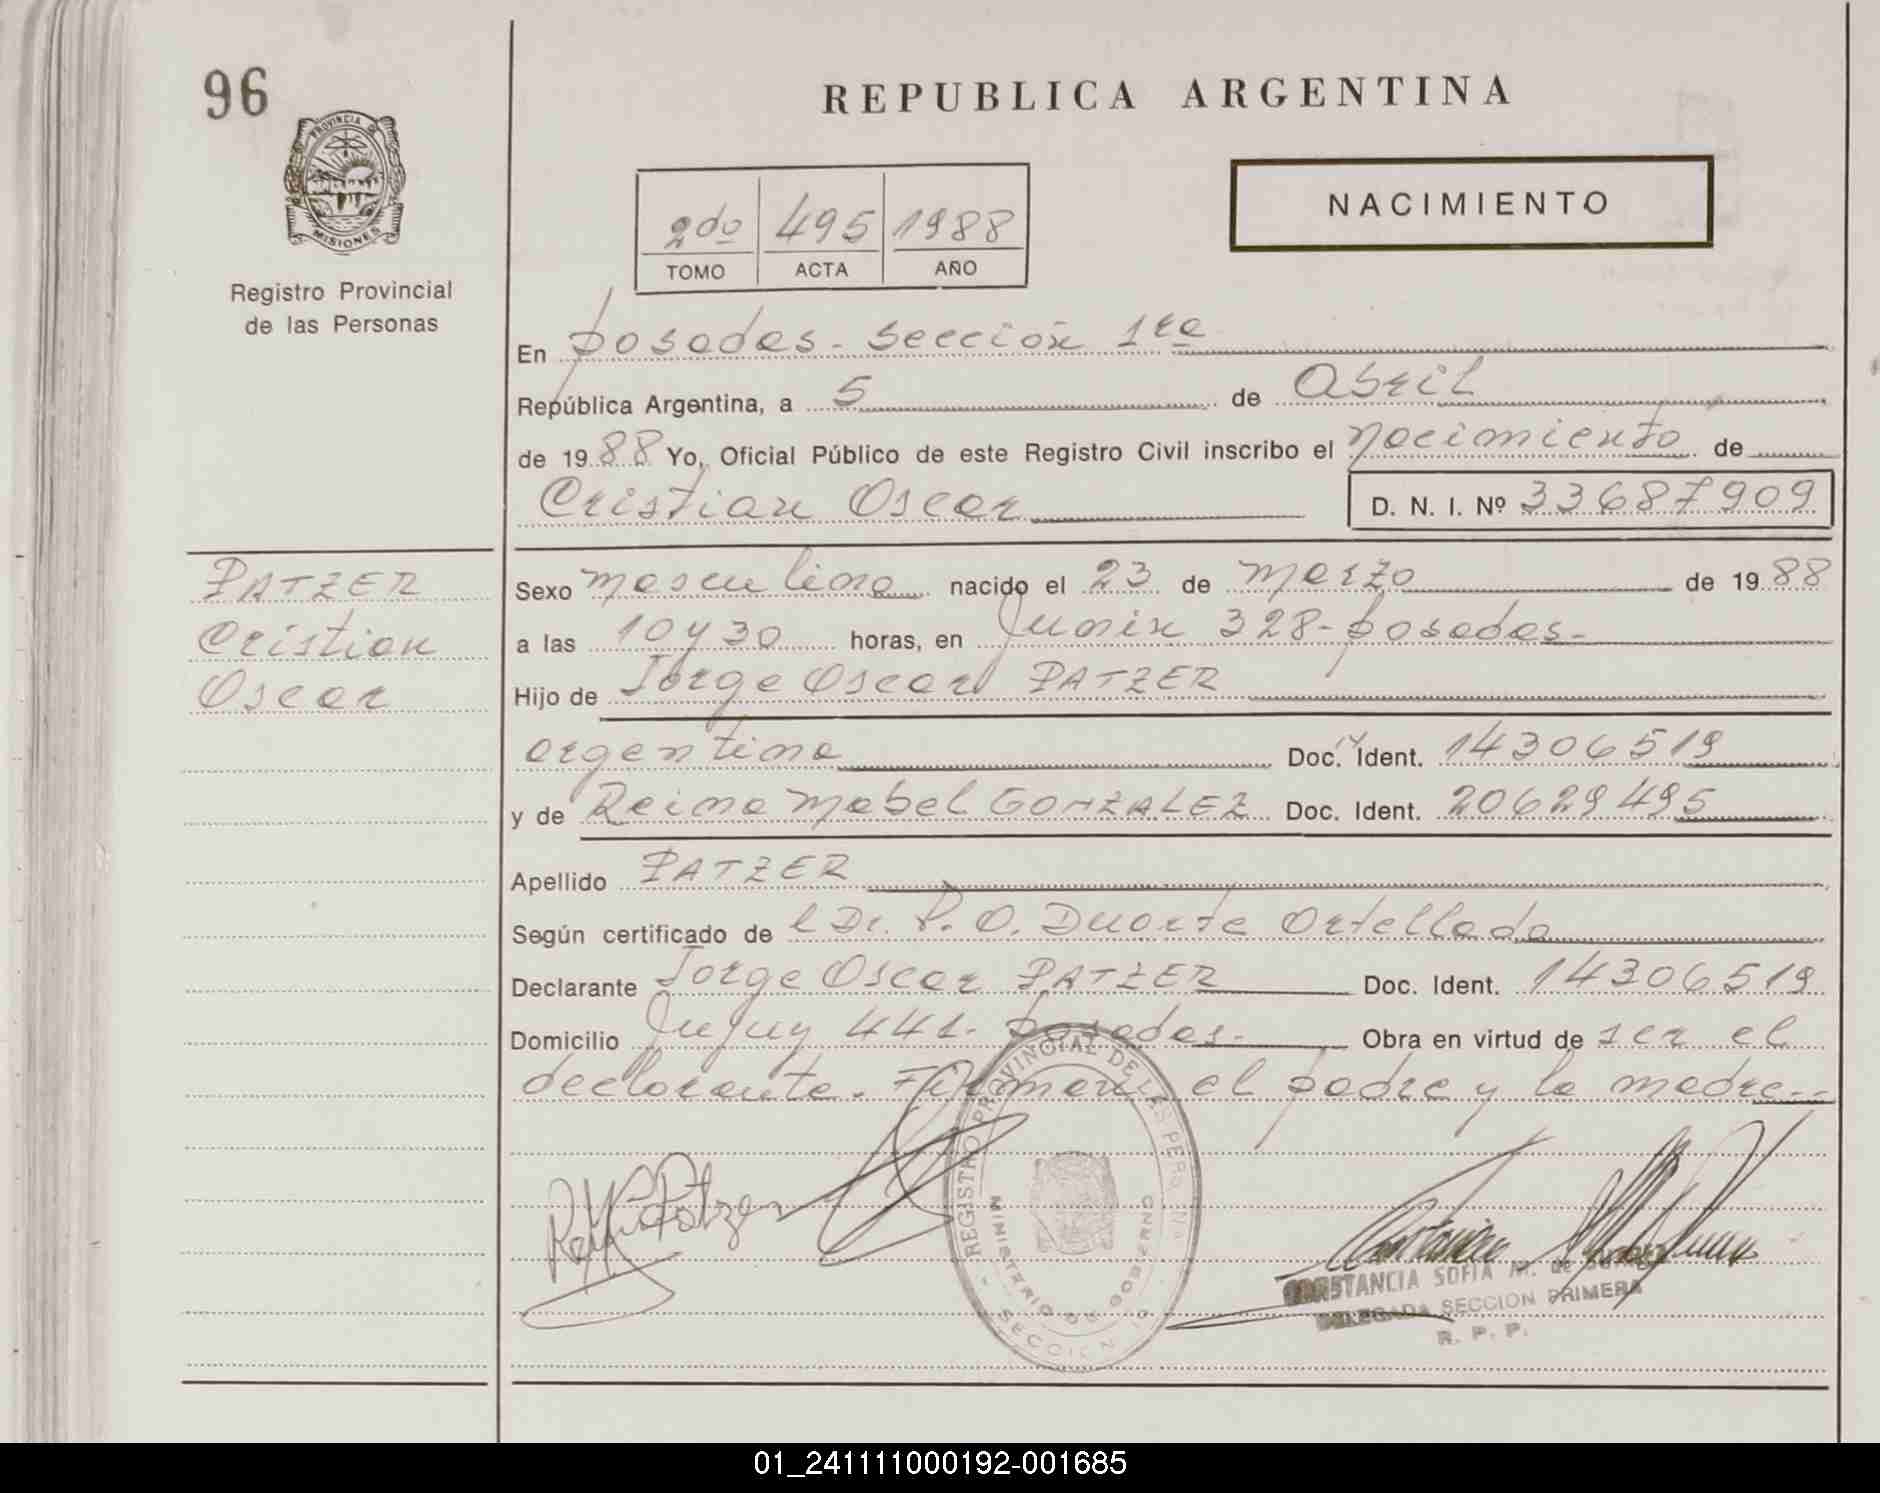 96
REPUBLICA ARGENTINA
PROVINCIA DE
MISIONES
Registro Provincial
de las Personas
2do 495 1988
TOMO ACTA AÑO
NACIMIENTO
En Posadas - Sección 1ra
República Argentina, a 5 de Abril
de 1988 Yo, Oficial Público de este Registro Civil inscribo el nacimiento de
Cristian Oscar D. N. I. Nº 33687909
PATZER
Cristian
Oscar
Sexo masculino nacido el 23 de marzo de 1988
a las 10 y 30 horas, en Junín 328 - Posadas -
Hijo de Jorge Oscar PATZER
argentino Doc. Ident. 14306519
y de Reina Mabel GONZALEZ Doc. Ident. 20629495
Apellido PATZER
Según certificado de l Dr. P. O. Duarte Ortellado
Declarante Jorge Oscar PATZER Doc. Ident. 14306519
Domicilio Jujuy 441 - Posadas - Obra en virtud de ser el
declarante. Firman el padre y la madre --
REGISTRO PROVINCIAL DE LAS PERSONAS
MINISTERIO DE GOBIERNO
SECCION 1a
Patzer
CONSTANCIA SOFIA M. de SUAREZ
DELEGADA SECCION PRIMERA
R. P. P.
01_241111000192-001685